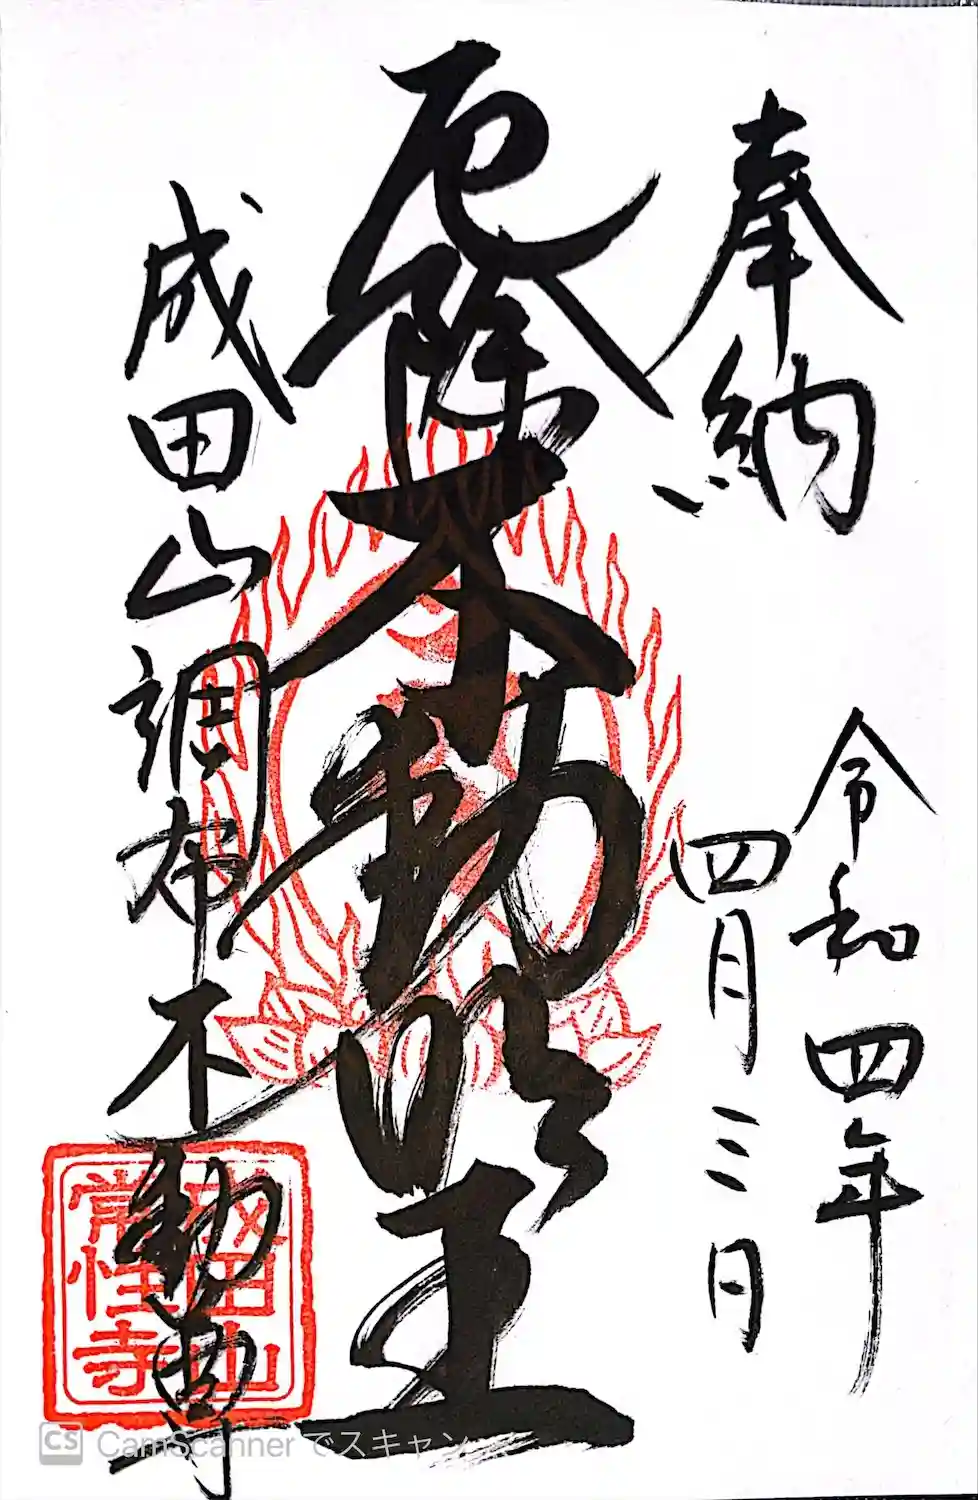 奉納
令和四年
四月三日
厄除不動明王
成田山調布不動尊
成田山
常性寺
CS CamScanner でスキャン